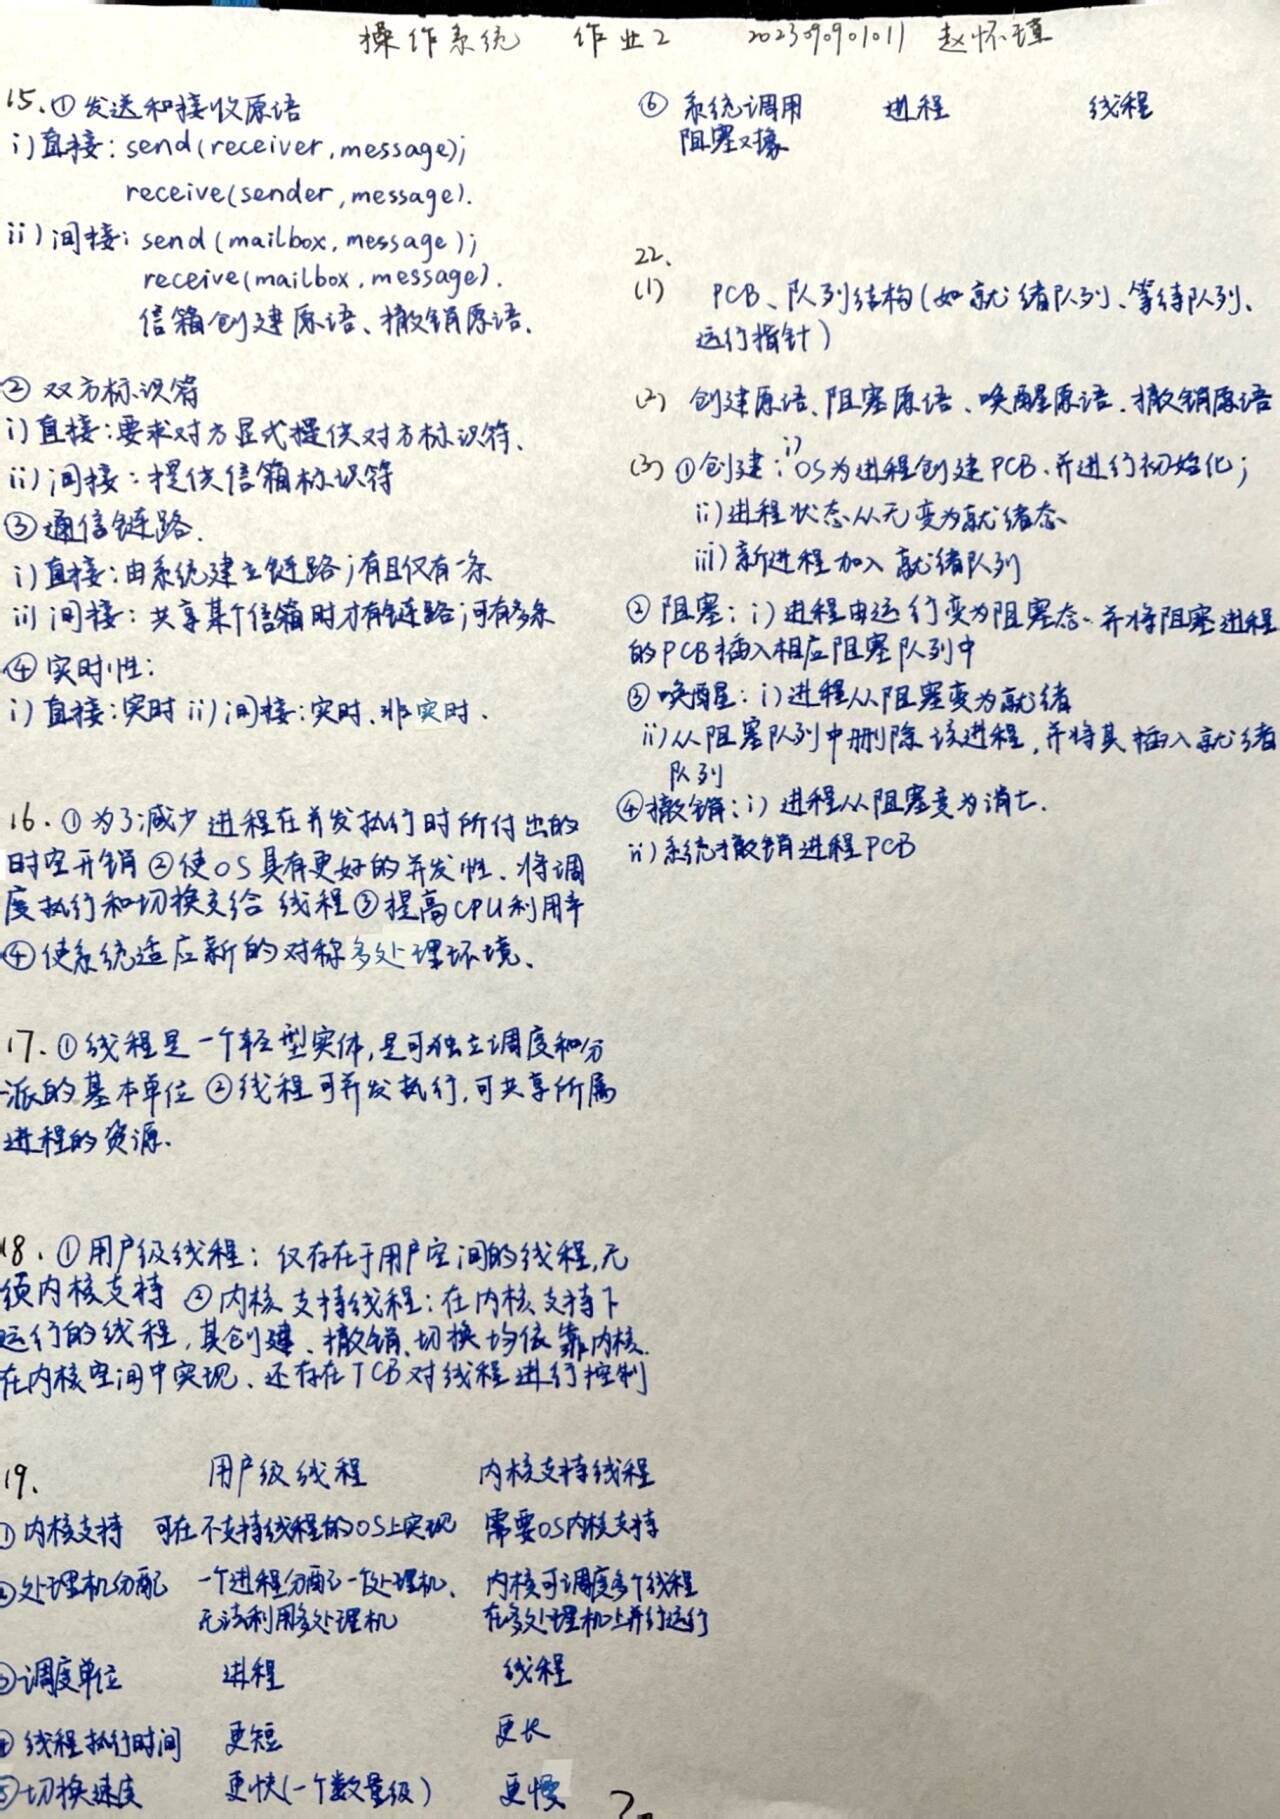 操作系统 作业2 2023090901011 赵怀瑾
15. ①发送和接收原语
i)直接: send(receiver, message);
receive(sender, message).
ii)间接: send(mailbox, message);
receive(mailbox, message).
信箱创建原语、撤销原语.
② 双方标识符
i)直接:要求对方显式提供对方标识符.
ii)间接:提供信箱标识符
③通信链路.
i)直接:由系统建立链路;有且仅有一条
ii)间接:共享某个信箱时才有链路;可有多条
④实时性:
i)直接:实时 ii)间接:实时、非实时.
16. ①为了减少进程在并发执行时所付出的
时空开销 ②使OS具有更好的并发性、将调
度执行和切换交给 线程③提高CPU利用率
④使系统适应新的对称多处理环境、
17. ①线程是一个轻型实体,是可独立调度和分
派的基本单位 ②线程可并发执行,可共享所属
进程的资源.
18. ①用户级线程: 仅存在于用户空间的线程,无
须内核支持 ②内核支持线程:在内核支持下
运行的线程,其创建、撤销、切换均依靠内核.
在内核空间中实现、还存在TCB对线程进行控制
19. 用户级线程 内核支持线程
①内核支持 可在不支持线程的OS上实现 需要OS内核支持
②处理机分配 一个进程分配了一个处理机、 内核可调度多个线程
无法利用多处理机 在多处理机上并行运行
③调度单位 进程 线程
④线程执行时间 更短 更长
⑤切换速度 更快(一个数量级) 更慢
⑥ 系统调用 进程 线程
阻塞对象
22.
(1) PCB、队列结构(如就绪队列、等待队列、
运行指针)
(2) 创建原语、阻塞原语、唤醒原语、撤销原语
(3) ①创建: i)OS为进程创建PCB、并进行初始化;
ii)进程状态从无变为就绪态
iii)新进程加入就绪队列
② 阻塞: i)进程由运行变为阻塞态、并将阻塞进程
的PCB插入相应阻塞队列中
③唤醒: i)进程从阻塞变为就绪
ii)从阻塞队列中删除该进程,并将其插入就绪
队列
④撤销: i)进程从阻塞变为消亡.
ii)系统撤销进程PCB